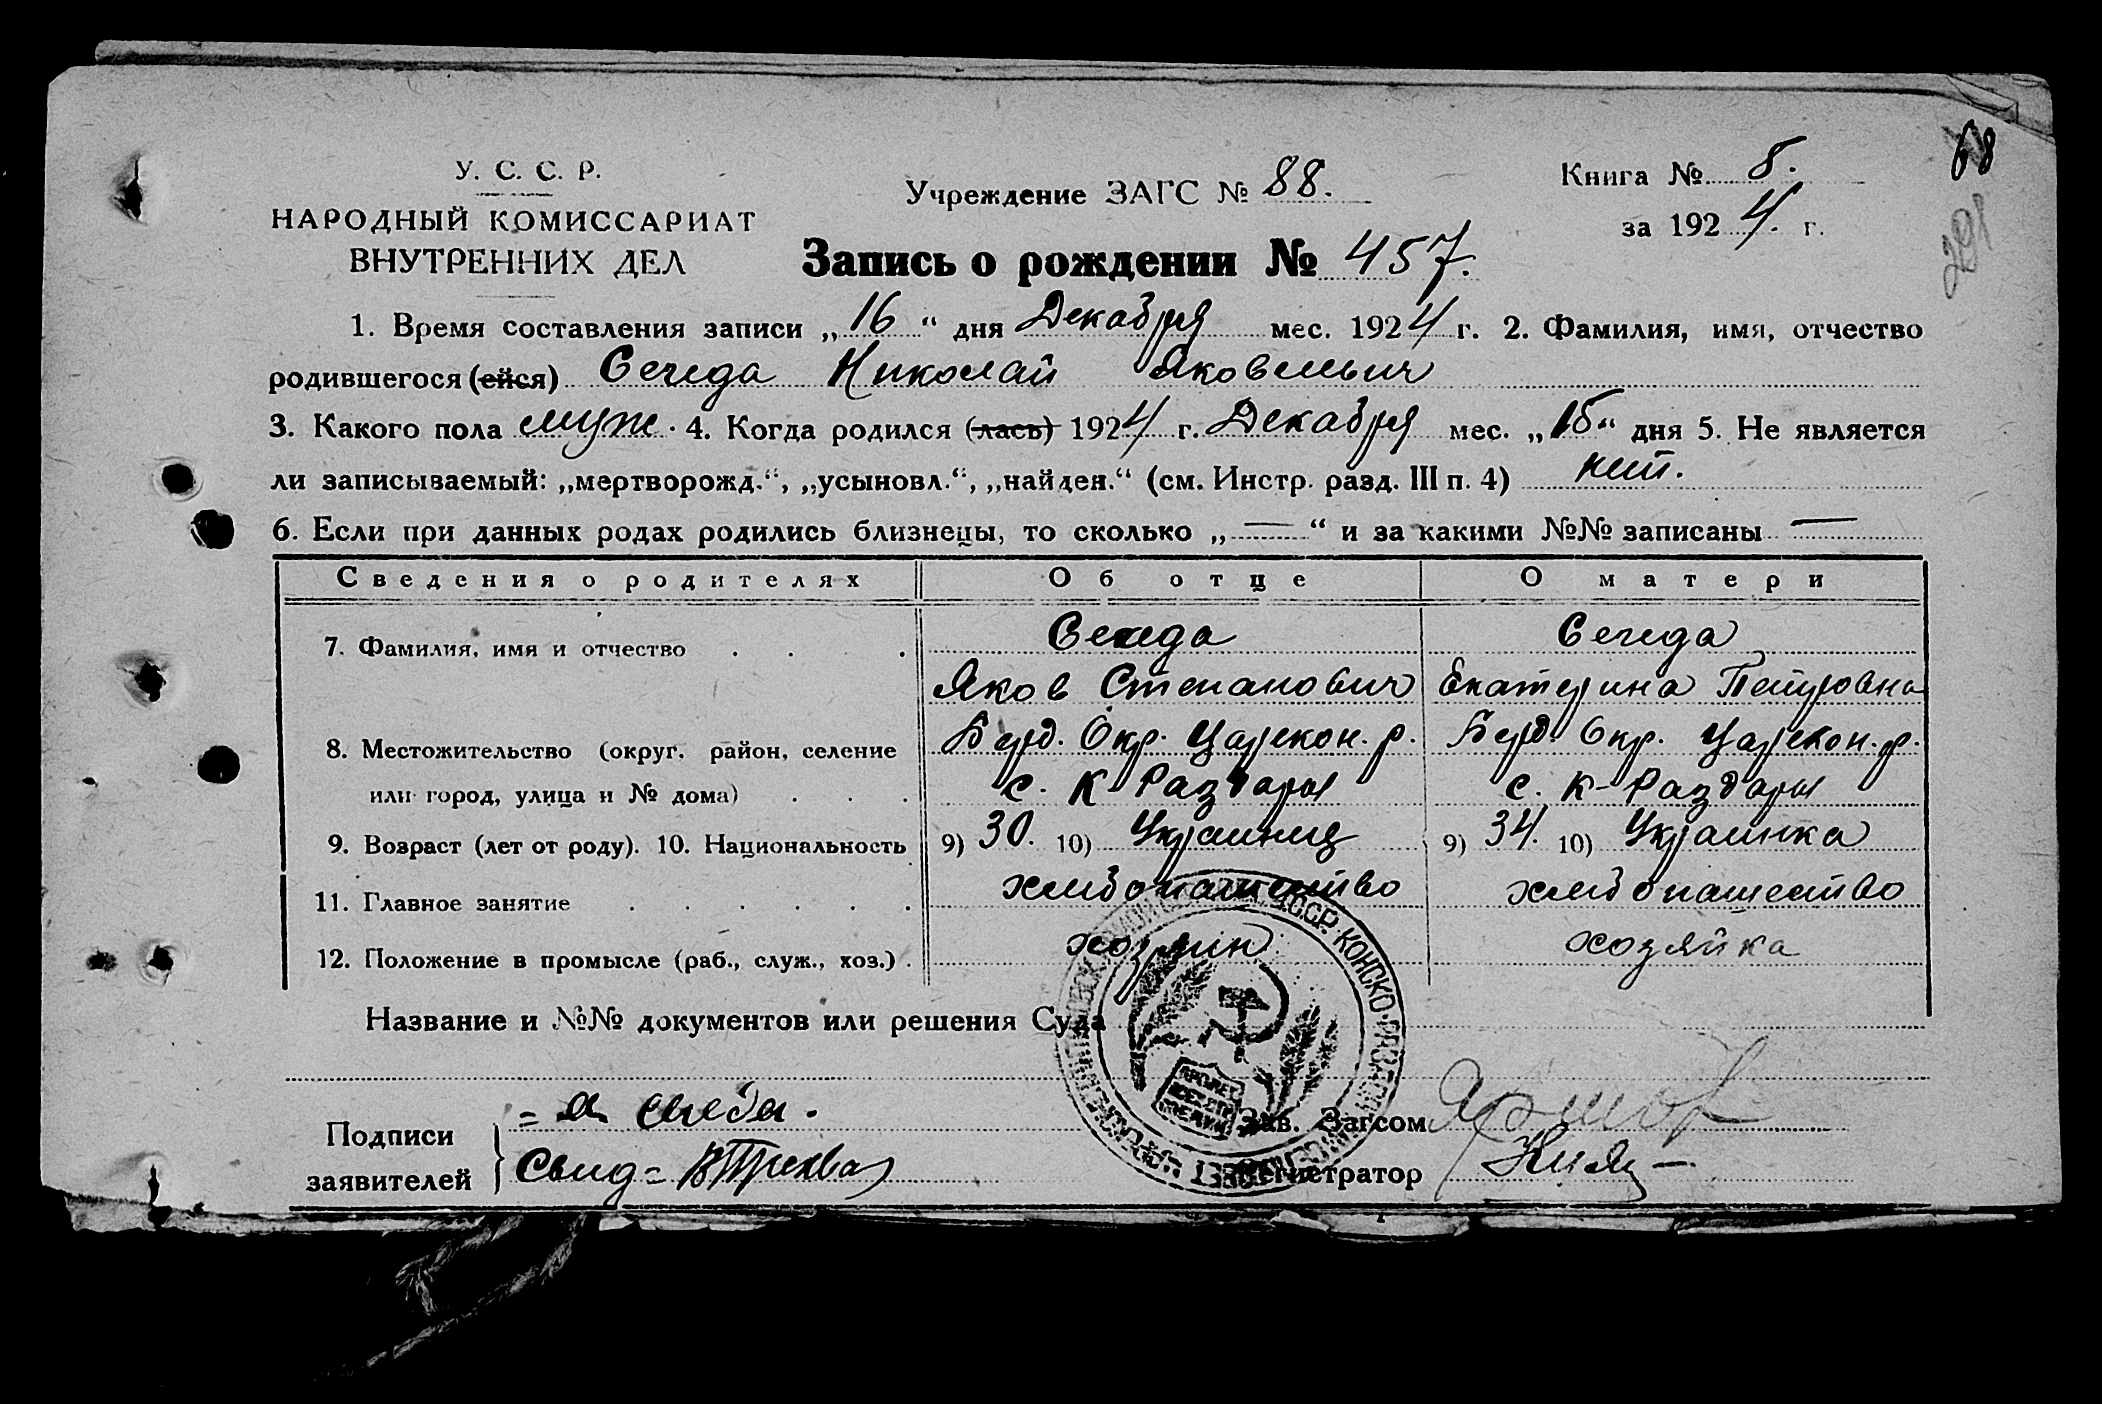 68
291
У. С. С. Р.
НАРОДНЫЙ КОМИССАРИАТ
ВНУТРЕННИХ ДЕЛ
Учреждение ЗАГС № 88.
Книга № 8.
за 1924 г.
Запись о рождении № 457.
1. Время составления записи „16“ дня Декабря мес. 1924 г. 2. Фамилия, имя, отчество
родившегося (ейся) Середа Николай Яковлевич
3. Какого пола муж. 4. Когда родился (лась) 1924 г. Декабря мес. „15“ дня 5. Не является
ли записываемый: „мертворожд.“, „усыновл.“, „найден.“ (см. Инстр. разд. III п. 4) нет.
6. Если при данных родах родились близнецы, то сколько „—“ и за какими №№ записаны —
Сведения о родителях Об отце О матери
7. Фамилия, имя и отчество Середа Середа
Яков Степанович Екатерина Петровна
8. Местожительство (округ, район, селение Берд. Окр. Царекон. р. Берд. Окр. Царекон. р.
или город, улица и № дома) с. К Раздоры с. К-Раздоры
9. Возраст (лет от роду). 10. Национальность 9) 30. 10) Украинец 9) 34. 10) Украинка
11. Главное занятие хлебопашество хлебопашество
12. Положение в промысле (раб., служ., хоз.) хозяин хозяйка
Название и №№ документов или решения Суда
УССР. КОНСКО-РАЗДОР
ПРОЛЕТ
ВСЕХ
Подписи
заявителей
Середа.
Свид =
Зав. Загсом
Регистратор